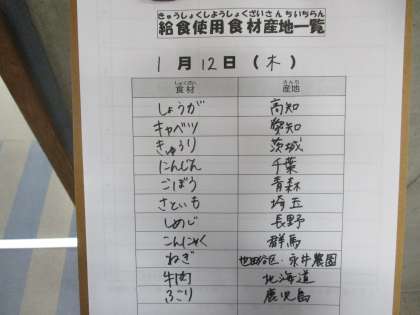 きゅうしょくしようしょくざいさんちいちらん
給食使用食材産地一覧
1月12日(木)
しょくざい さんち
食材 産地
しょうが 高知
キャベツ 愛知
きゅうり 茨城
にんじん 千葉
ごぼう 青森
さといも 埼玉
しめじ 長野
こんにゃく 群馬
ねぎ 世田谷区・永井農園
牛肉 北海道
ぶり 鹿児島